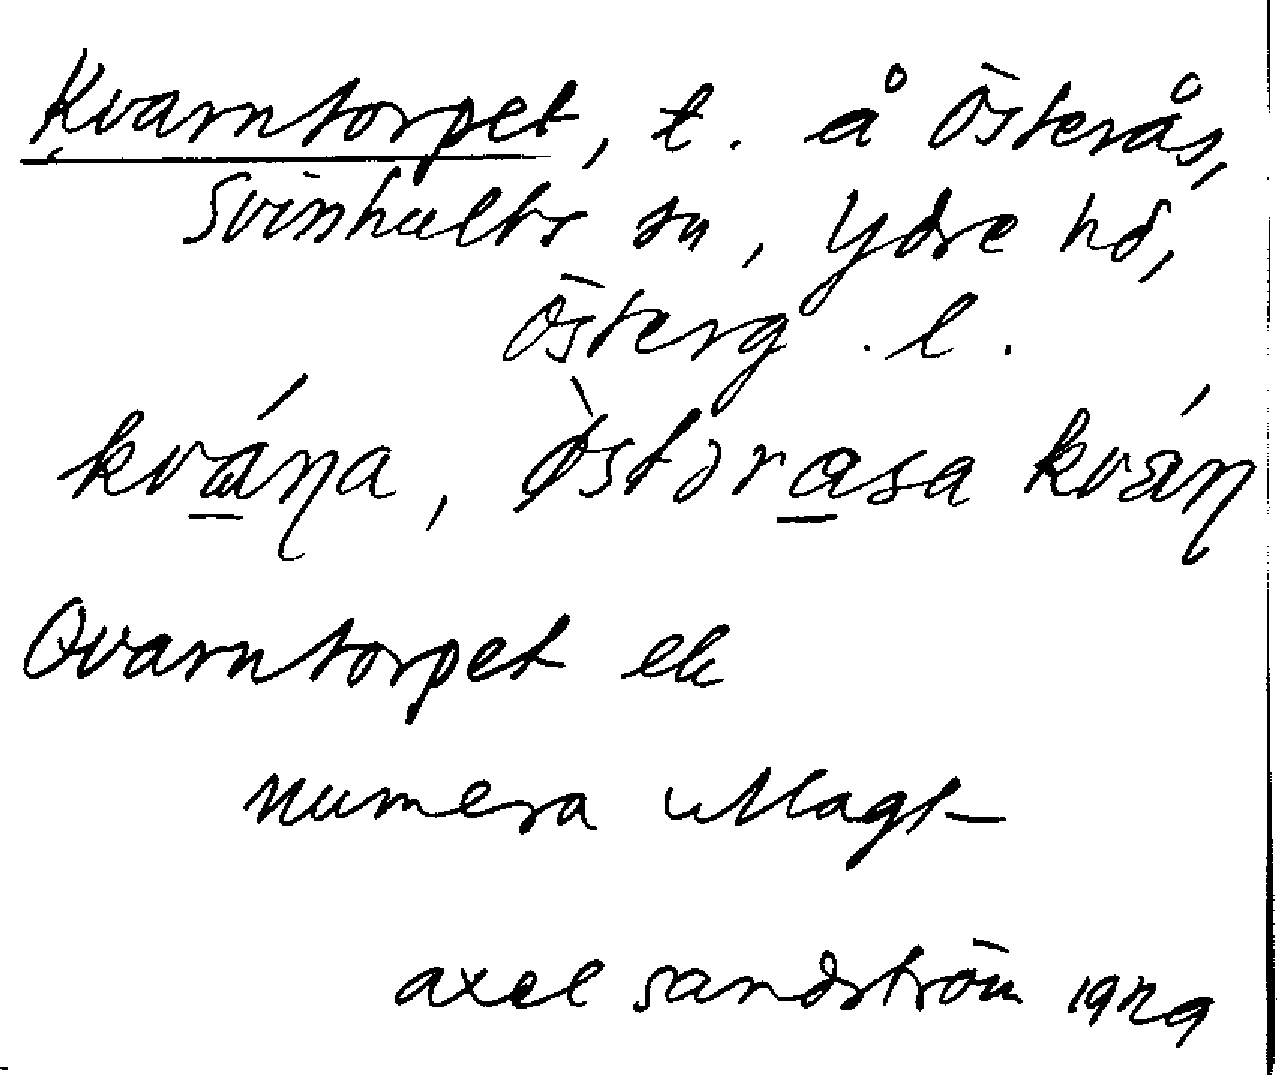 Kvarntorpet, t. å Österås,
Svinhults sn, Ydre hd,
Österg. l.
kvána, östərasa kván
Qvarntorpet ek
numera utlagt
Axel Sandström 1929